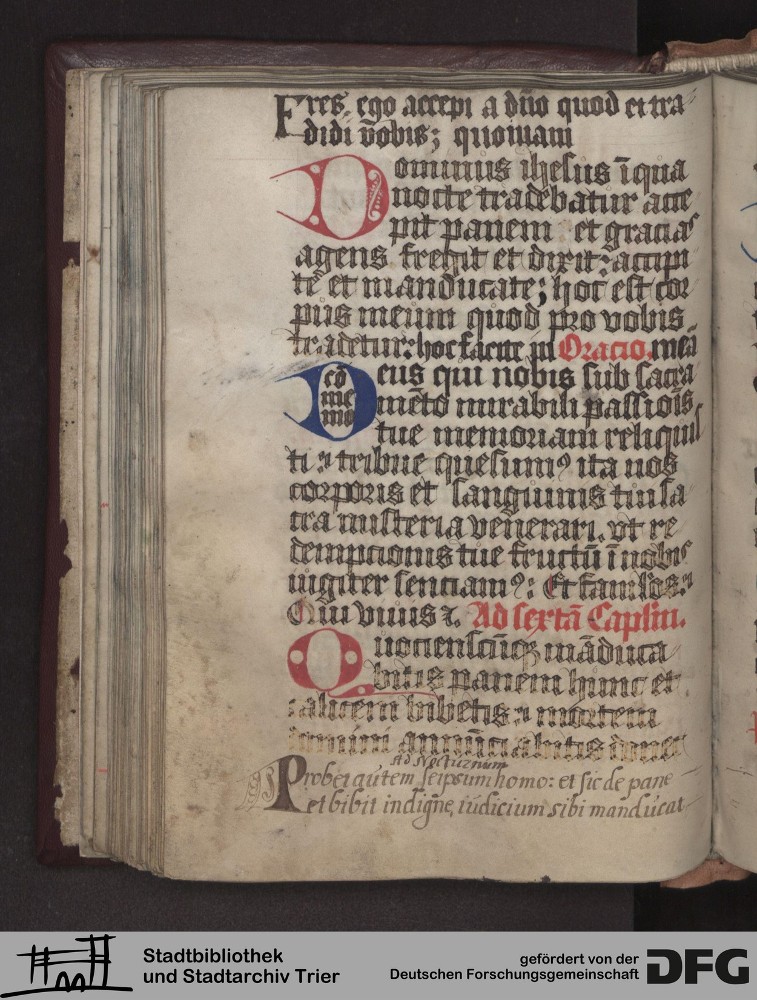 Fres. ego accepi a dño quod et tra
didi vobis; quoniam
Dominus ihesus ī qua
nocte tradebatur acce
pit panem et gracias
agens fregit et dixit: accipi
te et manducate; hoc est cor
pus meum quod pro vobis
tradetur: hoc facite in Oracio. meā
cō
me
mo
Deus qui nobis sub sacra
mēto mirabili passiōis
tue memoriam reliquis
ti tribue quesumꝰ ita nos
corporis et sanguinis tui sa
cra misteria venerari. vt re
dempcionis tue fructū ī nobis
iugiter senciamꝰ: Et famlōs.
Qui viuis Ad sextā Caplm.
Quociēscūqꝫ māduca
bitis panem hunc et
calicem bibetis mortem
domini annūciabitis donec
Ad Nocturnum
Probet autem seipsum homo: et sic de pane
et bibit indigne, iudicium sibi manducat
Stadtbibliothek
und Stadtarchiv Trier
gefördert von der
Deutschen Forschungsgemeinschaft
DFG